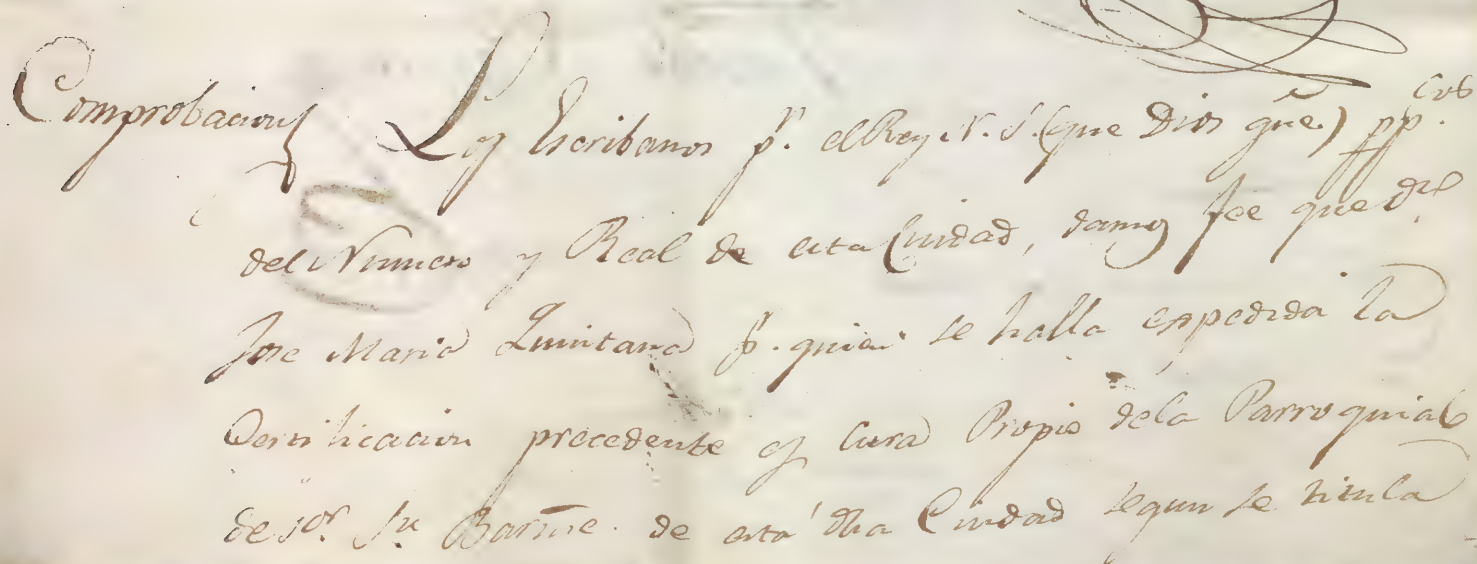 Comprobacion Los Escribanos pr. el Rey N. S. (que Dios gue.) pp.cos
del Numero y Real de esta Ciudad, damos fee que Dn.
Jose Maria Quintana pr. quien se halla expedida la
Certificacion precedente es Cura Propio dela Parroquial
de Sor. Sn. Barme. de esta dha Ciudad segun se titula